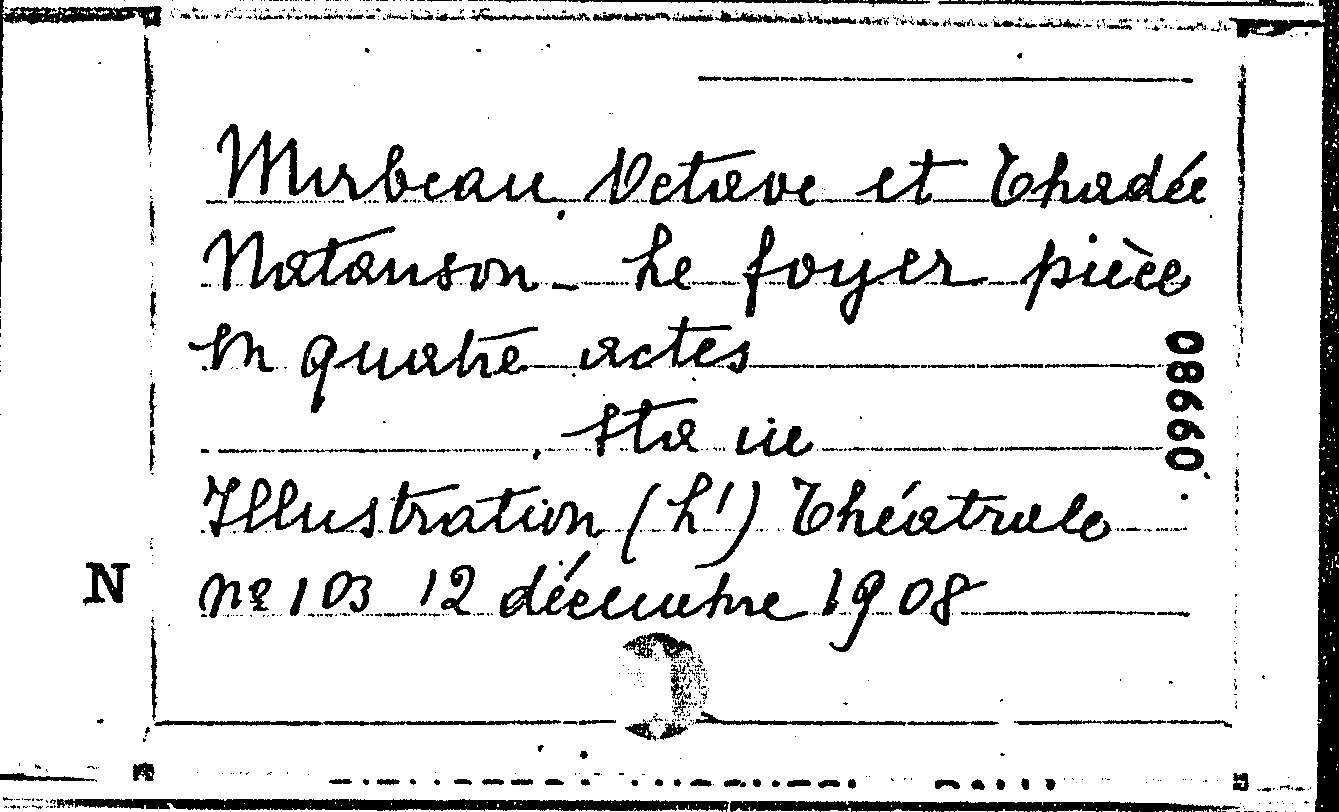 Mirbeau, Octave et Thadée
Natanson - Le foyer pièce
en quatre actes
Illustration (L') Théâtrale
nº 103 12 décembre 1908
N
08660